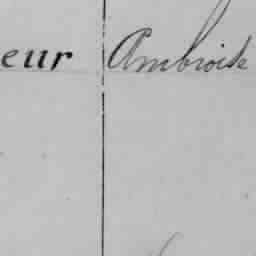 eur Ambroise